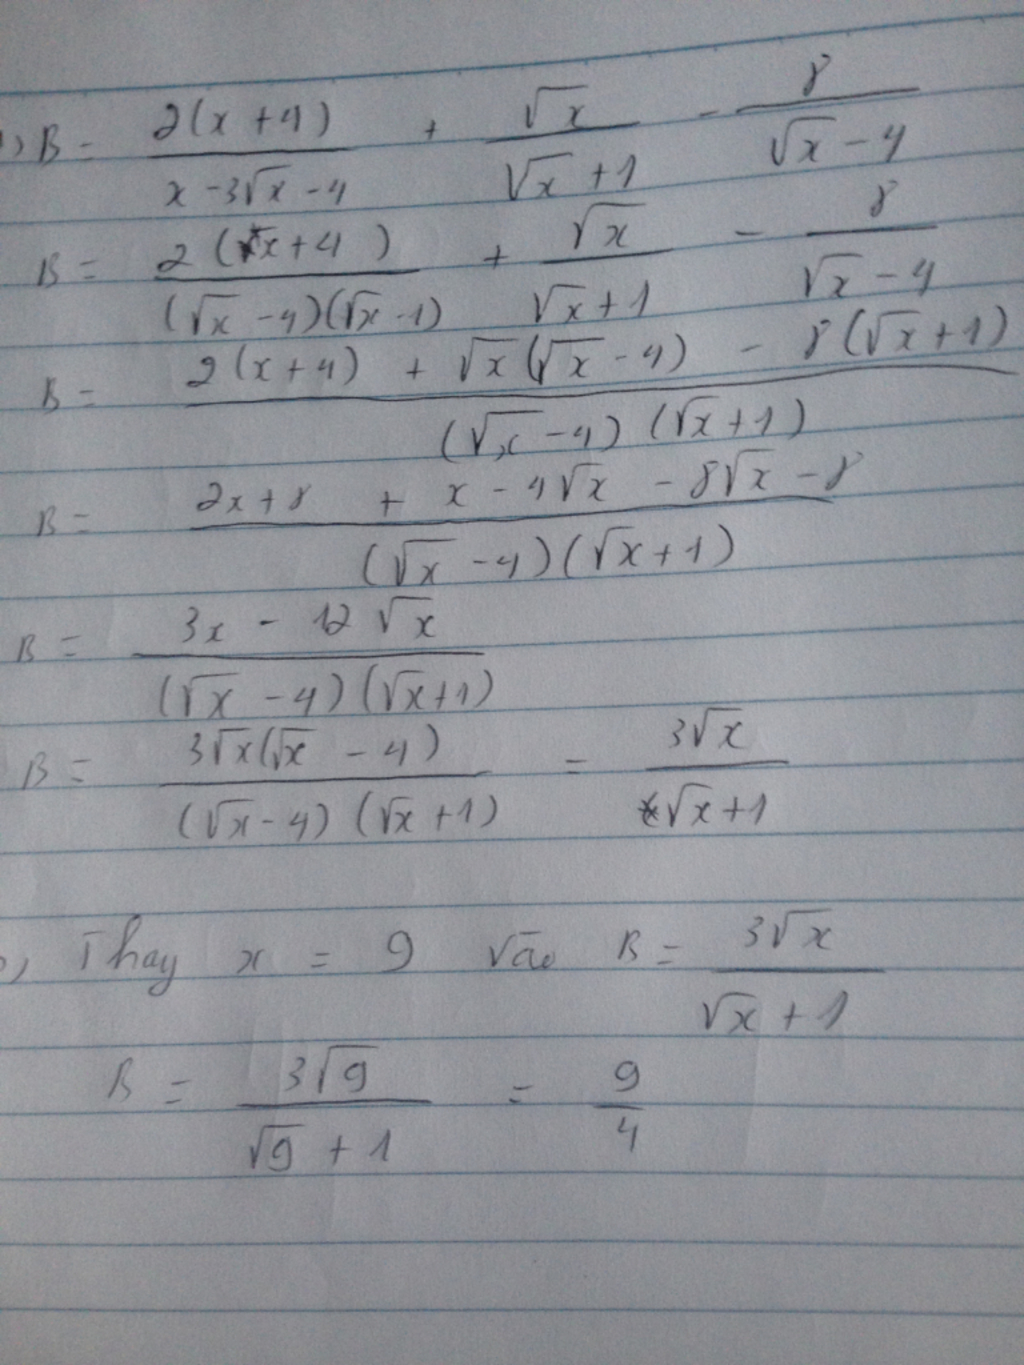 a) B = 2(x + 4) / (x - 3√x - 4) + √x / (√x + 1) - 8 / (√x - 4)
B = 2(x + 4) / (√x - 4)(√x - 1) + √x / (√x + 1) - 8 / (√x - 4)
B = (2(x + 4) + √x(√x - 4) - 8(√x + 1)) / (√x - 4)(√x + 1)
B = (2x + 8 + x - 4√x - 8√x - 8) / (√x - 4)(√x + 1)
B = (3x - 12√x) / (√x - 4)(√x + 1)
B = 3√x(√x - 4) / (√x - 4)(√x + 1) = 3√x / (√x + 1)
b) Thay x = 9 vào B = 3√x / (√x + 1)
B = 3√9 / (√9 + 1) = 9/4